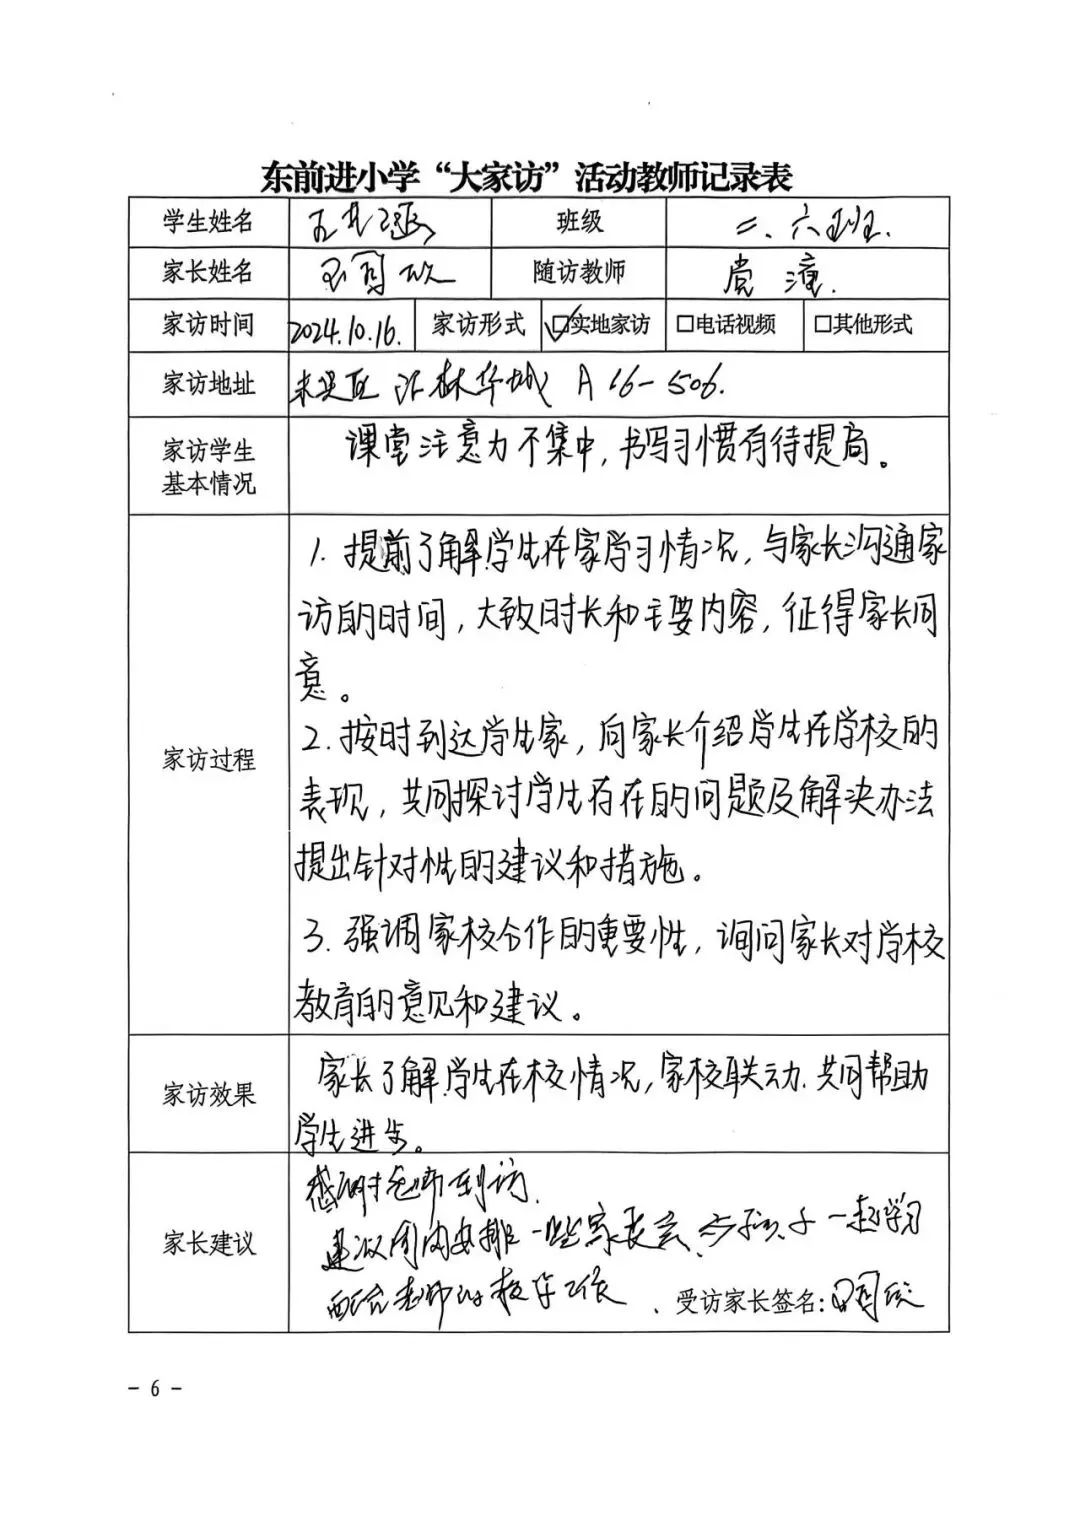 东前进小学“大家访”活动教师记录表
学生姓名 班级 二、六班.
家长姓名 随访教师 党
家访时间 2024.10.16. 家访形式 ☑实地家访 □电话视频 □其他形式
家访地址 未央区 林华城 A 16-506.
家访学生
基本情况
课堂注意力不集中,书写习惯有待提高。
家访过程
1. 提前了解学生在家学习情况,与家长沟通家
访的时间,大致时长和主要内容,征得家长同
意。
2.按时到达学生家,向家长介绍学生在学校的
表现,共同探讨学生存在的问题及解决办法
提出针对性的建议和措施。
3.强调家校合作的重要性,询问家长对学校
教育的意见和建议。
家访效果
家长了解学生在校情况,家校联动.共同帮助
学生进步。
家长建议
感谢老师到访.
建议周内安排一些家长会、与孩子一起学习
配合老师的教学工作 . 受访家长签名:
- 6 -